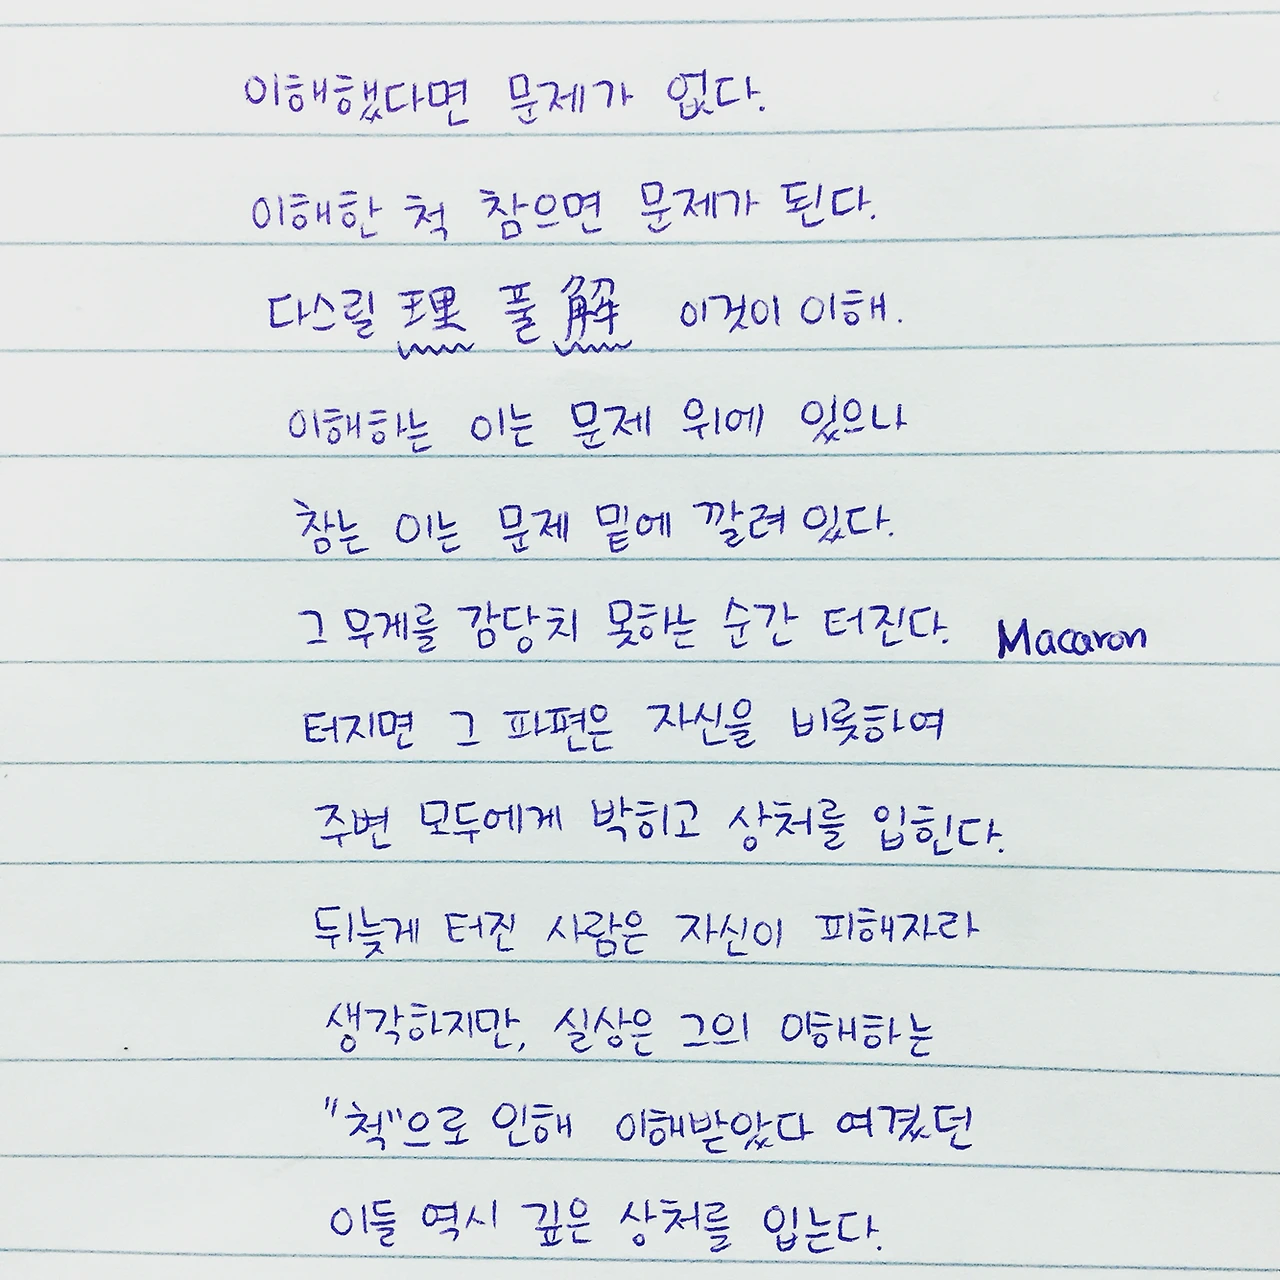 이해했다면 문제가 없다.
이해한 척 참으면 문제가 된다.
다스릴 理 풀 解 이것이 이해.
이해하는 이는 문제 위에 있으나
참는 이는 문제 밑에 깔려 있다.
그 무게를 감당치 못하는 순간 터진다. Macaron
터지면 그 파편은 자신을 비롯하여
주변 모두에게 박히고 상처를 입힌다.
뒤늦게 터진 사람은 자신이 피해자라
생각하지만, 실상은 그의 이해하는
"척"으로 인해 이해받았다 여겼던
이들 역시 깊은 상처를 입는다.